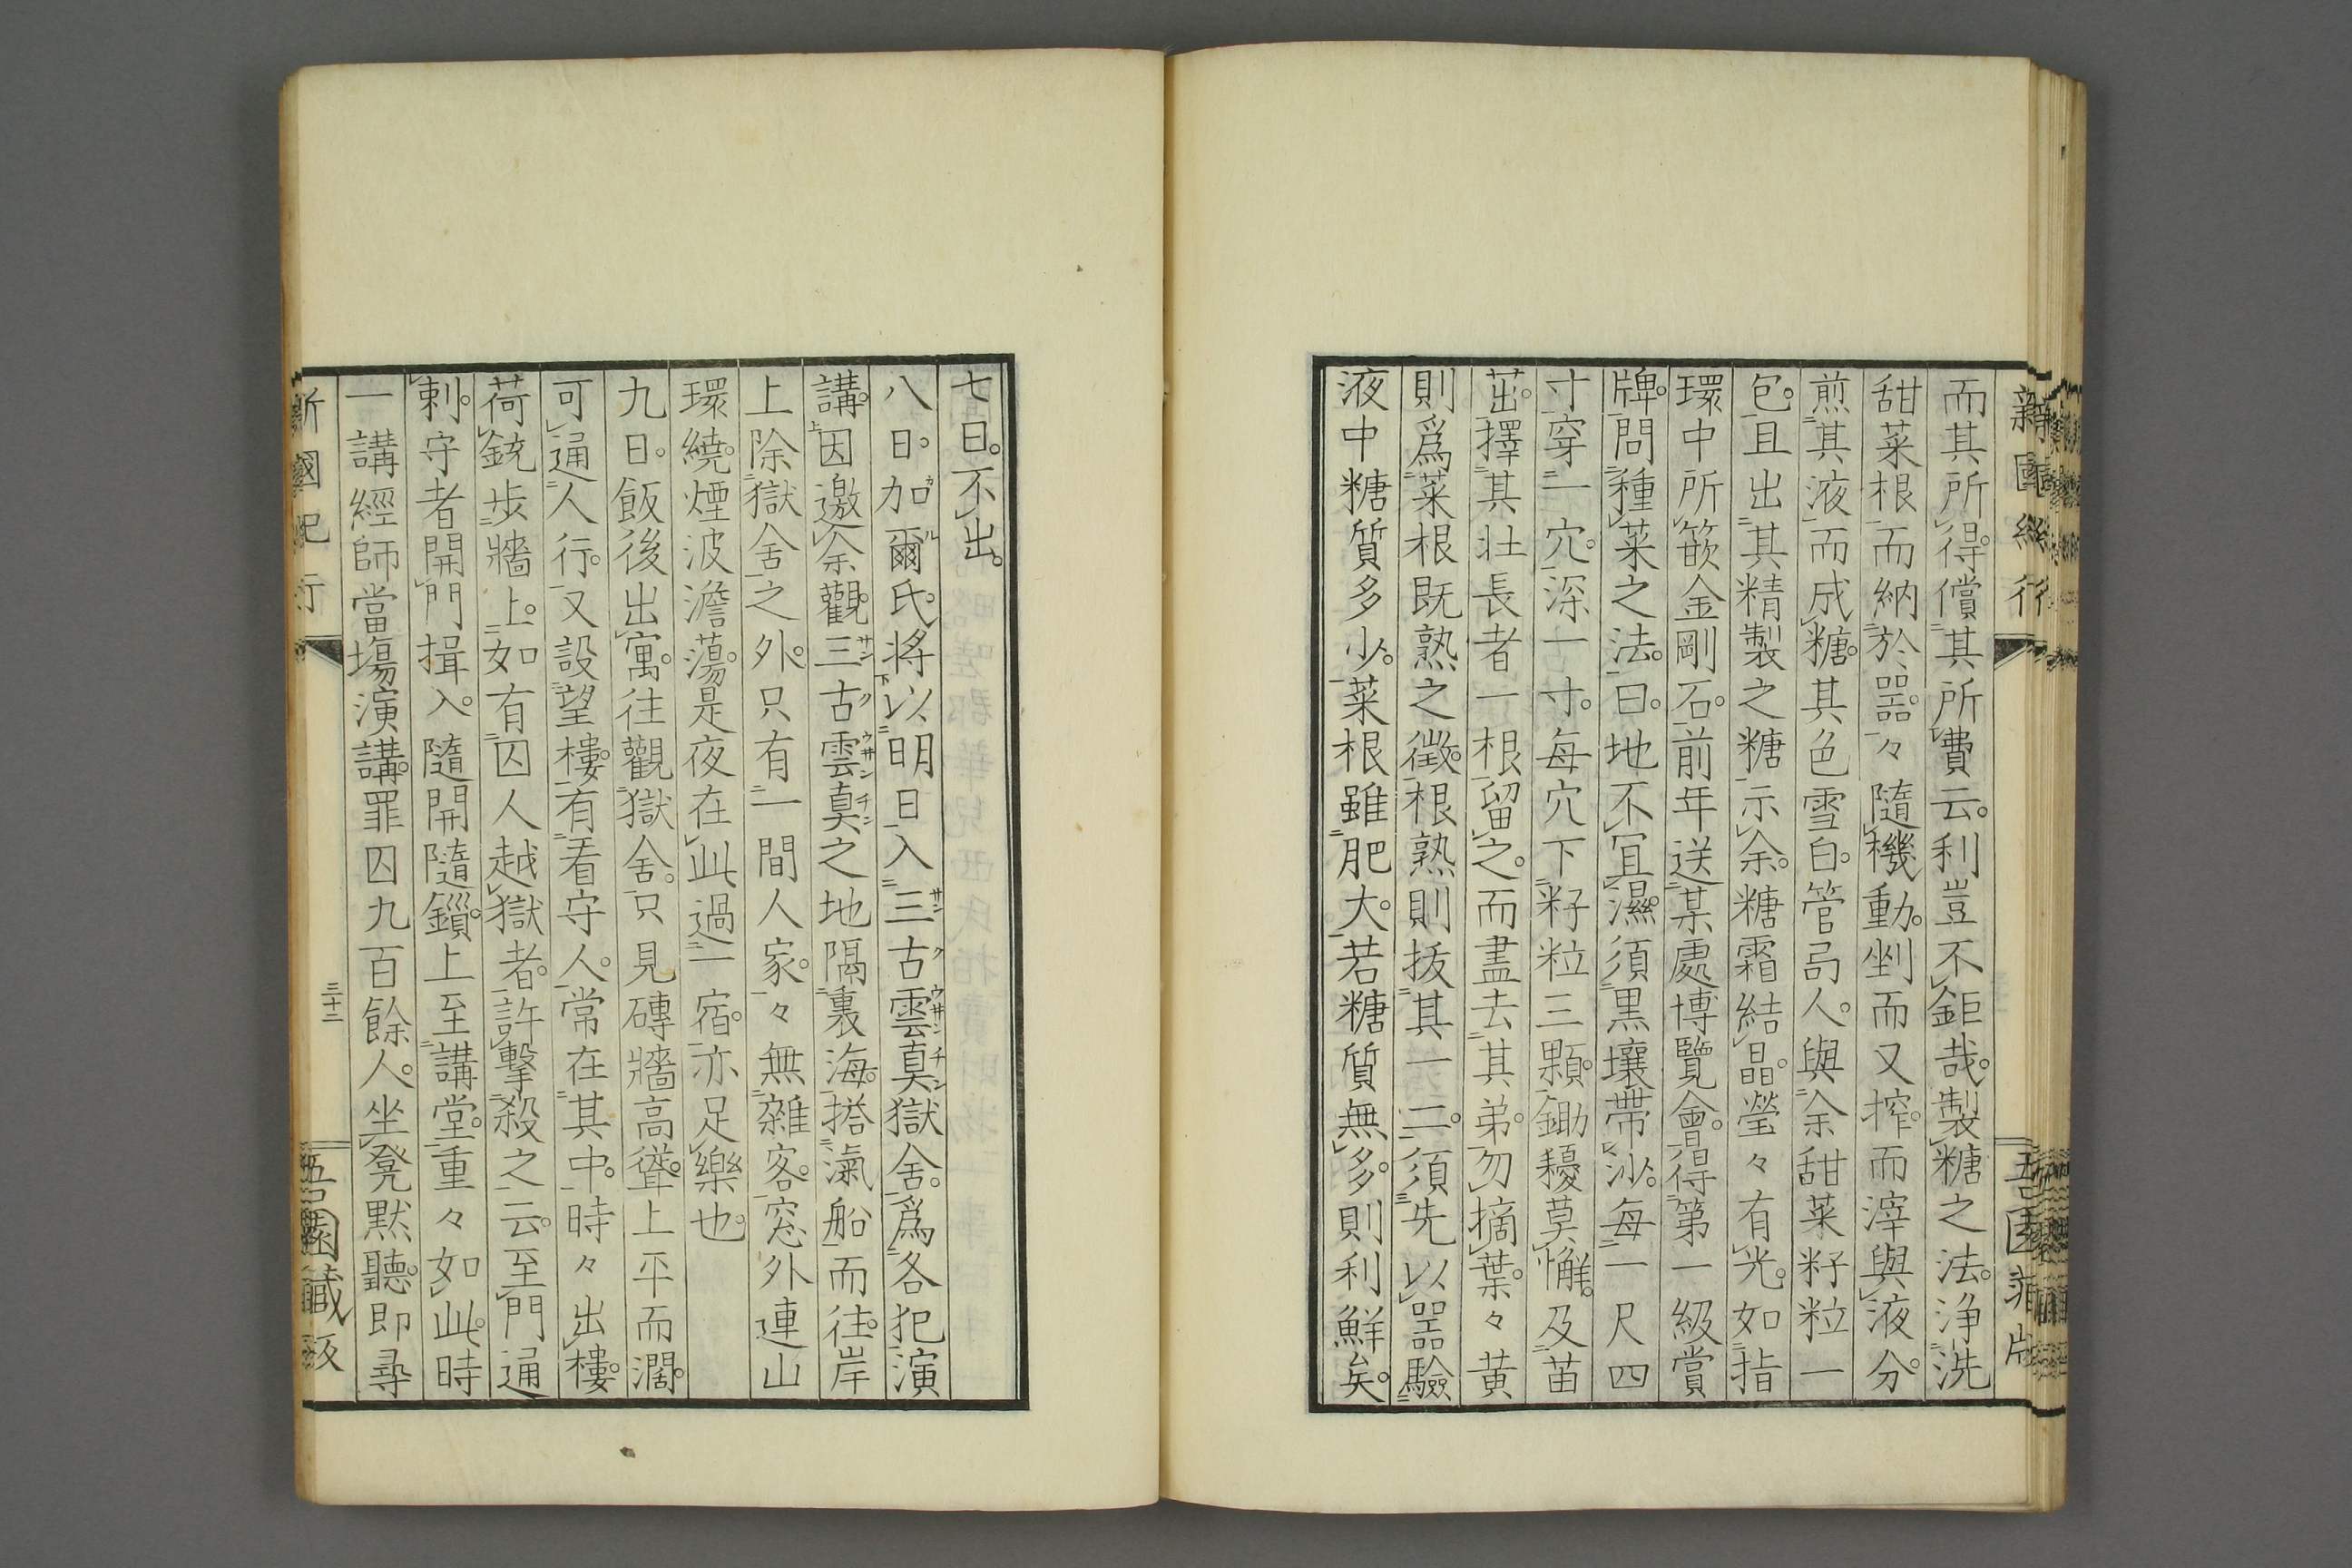 而其所得。償其所費云。利豈不鉅哉。製糖之法。淨洗
甜菜根而納於器。々隨機動。剉而又搾。而滓與液分。
煎其液而成糖。其色雪白。管局人。與余甜菜籽粒一
包。且出其精製之糖示余。糖霜結晶。瑩々有光。如指
環中所嵌金剛石。前年送某處博覽會。得第一級賞
牌。問種菜之法。曰。地不宜濕。須黑壤帶沙。每一尺四
寸穿一穴。深一寸。每穴下籽粒三顆。鋤耰莫懈。及苗
茁。擇其壯長者一根留之。而盡去其弟。勿摘葉。々黃
則爲菜根既熟之徵。根熟則拔其一二。須先以器驗
液中糖質多少。菜根雖肥大。若糖質無多。則利鮮矣。
七日。不出。
八日。加爾氏。將以明日入三古雲真獄舍。爲各犯演
講。因邀余觀。三古雲真之地隔裏海。搭滊船而往。岸
上除獄舍之外。只有一間人家。々無雜客。窓外連山
環繞。煙波澹蕩。是夜在此過一宿。亦足樂也。
九日。飯後出寓。往觀獄舍。只見磚牆高聳。上平而濶。
可通人行。又設望樓。有看守人。常在其中。時々出樓。
荷銃步牆上。如有囚人越獄者。許擊殺之云。至門通
刺。守者開門揖入。隨開隨鎖。上至講堂。重々如此。時
一講經師當場演講。罪囚九百餘人。坐凳默聽。即尋
新國紀行
三十二
吾園藏版